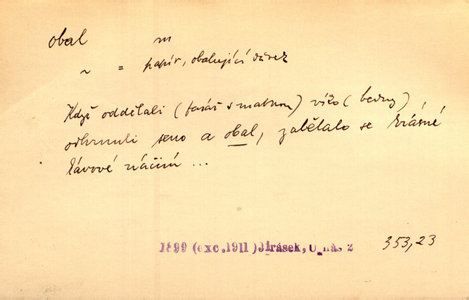 obal m
~ = papír, obalující dárek
Když oddělali (farář s matkou) víko (bedny)
odhrnuli seno a obal, zabělalo se krásné
kávové náčiní ...
1899 (exc. 1911) Jirásek, U nás 2 353,23